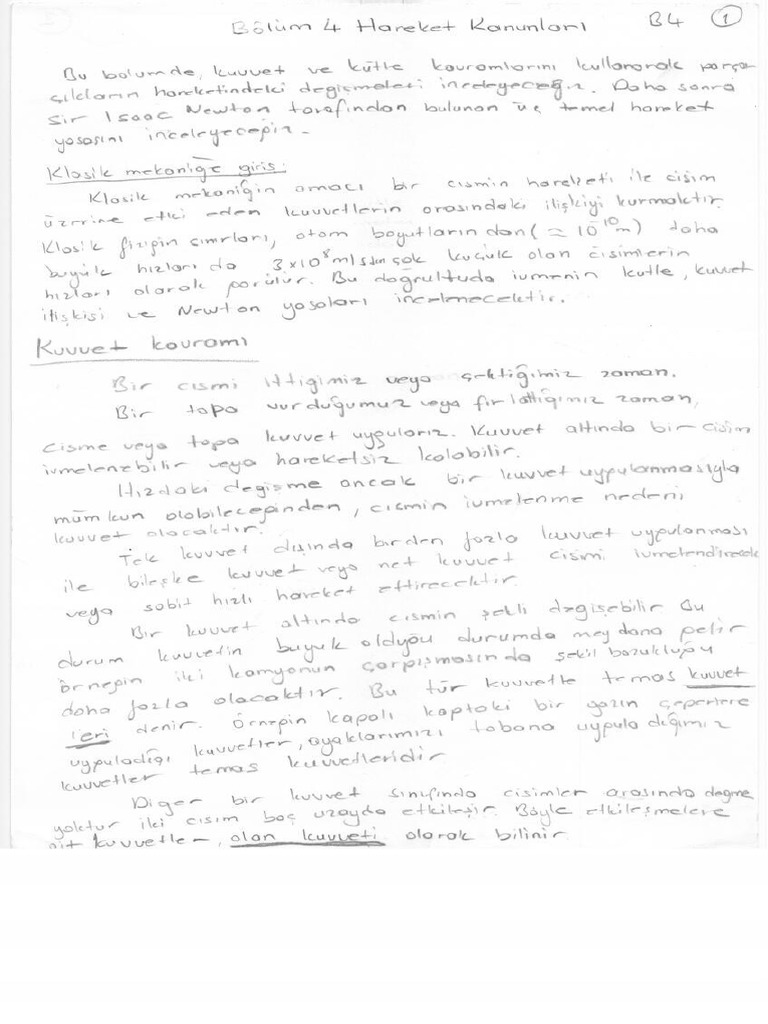 Bölüm 4 Hareket Kanunları B4 1
Bu bölümde, kuvvet ve kütle kavramlarını kullanarak parça
cıkların hareketindeki değişmeleri inceleyeceğiz. Daha sonra
Sir Isaac Newton tarafından bulunan üç temel hareket
yasasını inceleyeceğiz.
Klasik mekaniğe giriş:
Klasik mekaniğin amacı bir cismin hareketi ile cisim
üzerine etki eden kuvvetlerin arasındaki ilişkiyi kurmaktır.
Klasik fiziğin sınırları, atom boyutlarından (≃ 10^-10 m) daha
büyük hızları da 3x10^8 m/s den çok küçük olan cisimlerin
hızları olarak görülür. Bu doğrultuda ivmenin kütle, kuvvet
ilişkisi ve Newton yasaları incelenecektir.
Kuvvet kavramı
Bir cismi ittiğimiz veya çektiğimiz zaman.
Bir topa vurduğumuz veya fırlattığımız zaman,
cisme veya topa kuvvet uygularız. Kuvvet altında bir cisim
ivmelenebilir veya hareketsiz kalabilir.
Hızdaki değişme ancak bir kuvvet uygulanmasıyla
mümkün olabileceğinden, cismin ivmelenme nedeni
kuvvet olacaktır.
Tek kuvvet dışında birden fazla kuvvet uygulanması
ile bileşke kuvvet veya net kuvvet cismi ivmelendirecek
veya sabit hızlı hareket ettirecektir.
Bir kuvvet altında cismin şekli değişebilir Bu
durum kuvvetin büyük olduğu durumda meydana gelir
örneğin iki kamyonun çarpışmasında şekil bozukluğu
daha fazla olacaktır. Bu tür kuvvetle temas kuvvet
leri denir. Örneğin kapalı kaptaki bir gazın çeperlere
uyguladığı kuvvetler, ayaklarımızı tabana uyguladığımız
kuvvetler temas kuvvetleridir
Diğer bir kuvvet sınıfında cisimler arasında değme
yoktur iki cisim boş uzayda etkileşir. Böyle etkileşmelere
ait kuvvetler, alan kuvveti olarak bilinir.